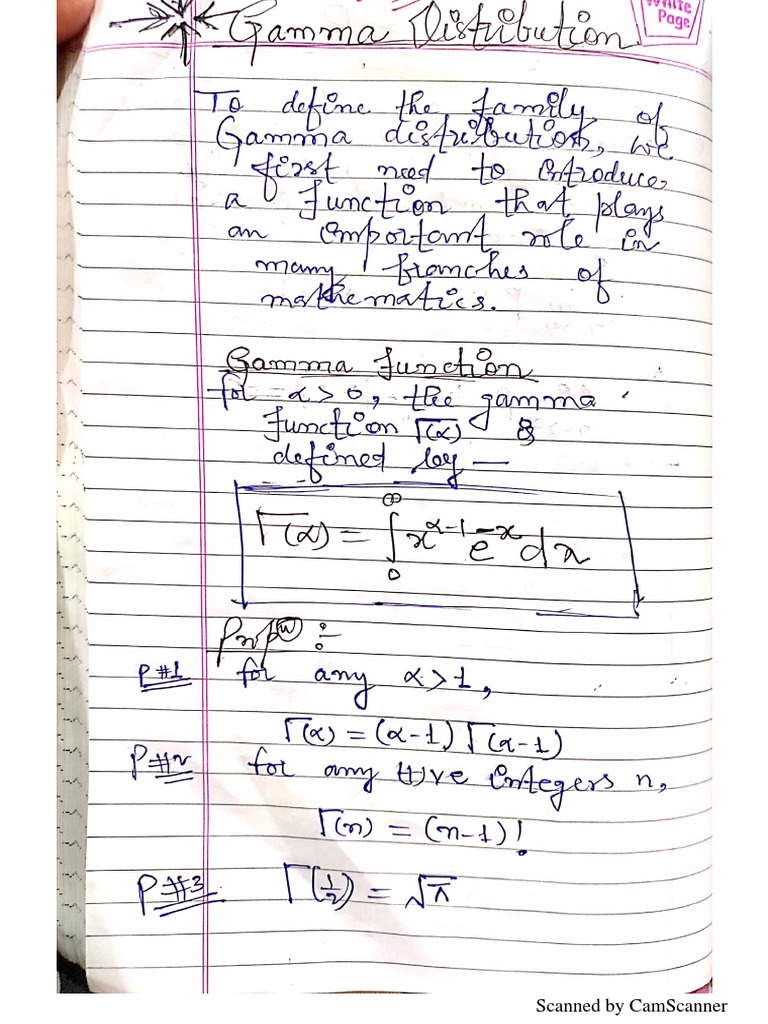 Gamma Distribution
White
Page
To define the family of
Gamma distribution, we
first need to introduce
a function that plays
an important role in
many branches of
mathematics.
Gamma function
for α > 0, the gamma
function Γ(α) is
defined by —
Γ(α) = ∫₀^∞ x^(α-1) e^(-x) dx
Prop(n) :-
P#1 for any α > 1,
Γ(α) = (α-1) Γ(α-1)
P#2 for any (+)ve integers n,
Γ(n) = (n-1)!
P#3 Γ(1/2) = √π
Scanned by CamScanner